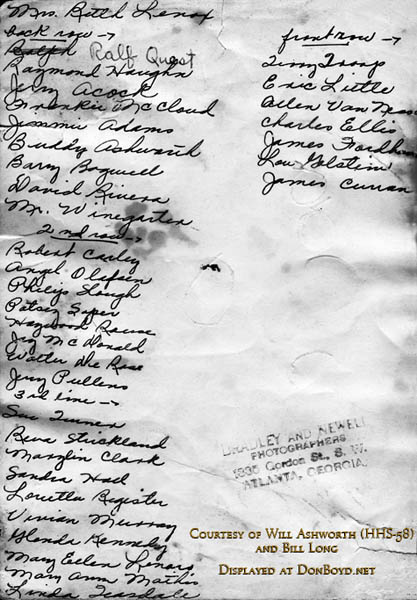 Mrs. Beth Lenox
back row →
Ralph Ralf Quest
Raymond Vaughn
Jerry Acock
Frankie McCloud
Jimmie Adams
Buddy Ashward
Barry Bagwell
David Rivera
Mr. Winegarten
2nd row →
Robert Carley
Angel
Philip Slough
Patsy Soper
Haywood Rouse
Jim McDonald
Walter De Rose
Jerry Pullens
3rd line →
Sue Turner
Reva Strickland
Marylin Clark
Sandra Had
Loretta Register
Vivian Murray
Glenda Kennedy
Mary Ellen Lenard
Mary Ann Mathis
Linda Teasdale
front row →
Terry
Eric Little
Allen Van Ness
Charles Ellis
James Fordham
Lou Gelstein
James Curran
BRADLEY AND NEWELL
PHOTOGRAPHERS
1335 Gordon St., S. W.
ATLANTA, GEORGIA.
Courtesy of Will Ashworth (HHS-58)
and Bill Long
Displayed at DonBoyd.net